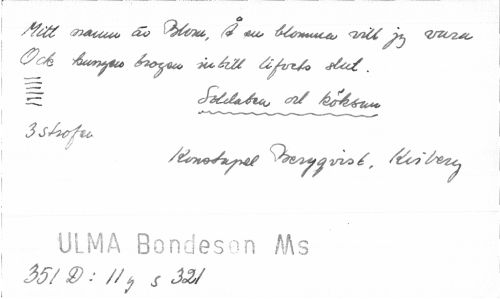 Mitt namn är Blom, Å en blomma vill jg vara
Och kungen trogen intill lifvets slut.
Soldaten och köksan
3 strofer
Konstapel Bergqvist, Kisberg
ULMA Bondeson Ms
351 D: 11 g s 321